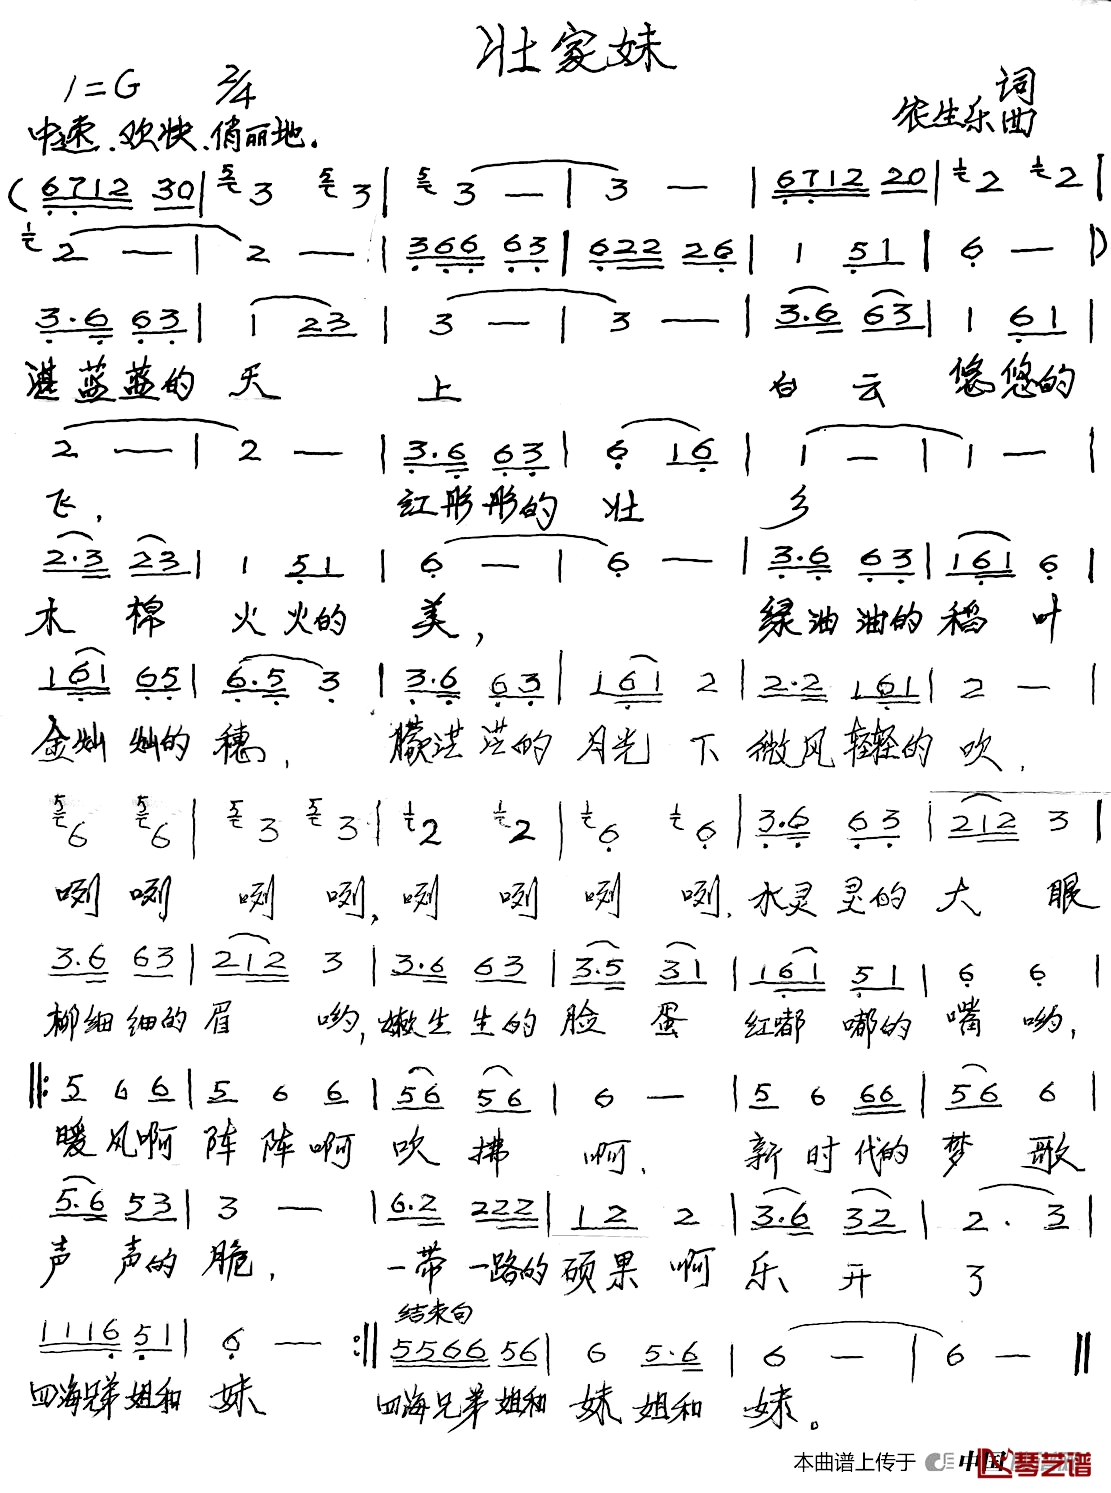 壮家妹
1=G 2/4 词
农生乐 曲
中速、欢快、俏丽地。
(6712 30 | 3 3 | 3 — | 3 — | 6712 20 | 2 2 |
2 — | 2 — | 366 63 | 622 26 | 1 51 | 6 — |)
3.6 63 | 1 23 | 3 — | 3 — | 3.6 63 | 1 61 |
湛蓝蓝的天 上 白云悠悠的
2 — | 2 — | 3.6 63 | 6 16 | 1 — | 1 — |
飞, 红彤彤的壮 乡
2.3 23 | 1 51 | 6 — | 6 — | 3.6 63 | 161 6 |
木棉火火的美, 绿油油的稻叶
161 65 | 6.5 3 | 3.6 63 | 161 2 | 2.2 161 | 2 — |
金灿灿的穗, 朦茫茫的月光下微风轻轻的吹,
6 6 | 3 3 | 2 2 | 6 6 | 3.6 63 | 212 3 |
咧咧咧咧,咧咧咧咧,水灵灵的大眼
3.6 63 | 212 3 | 3.6 63 | 3.5 31 | 161 51 | 6 6 |
柳细细的眉 哟,嫩生生的脸蛋红嘟嘟的嘴哟,
‖: 5 6 6 | 5 6 6 | 56 56 | 6 — | 5 6 66 | 56 6 |
暖风啊阵阵啊吹拂 啊, 新时代的梦歌
5.6 53 | 3 — | 6.2 222 | 12 2 | 3.6 32 | 2. 3 |
声声的脆, 一带一路的硕果啊乐开了
结束句
1116 51 | 6 — :‖ 5566 56 | 6 5.6 | 6 — | 6 — ‖
四海兄弟姐和妹 四海兄弟姐和妹姐和妹。
本曲谱上传于 中国 琴艺谱